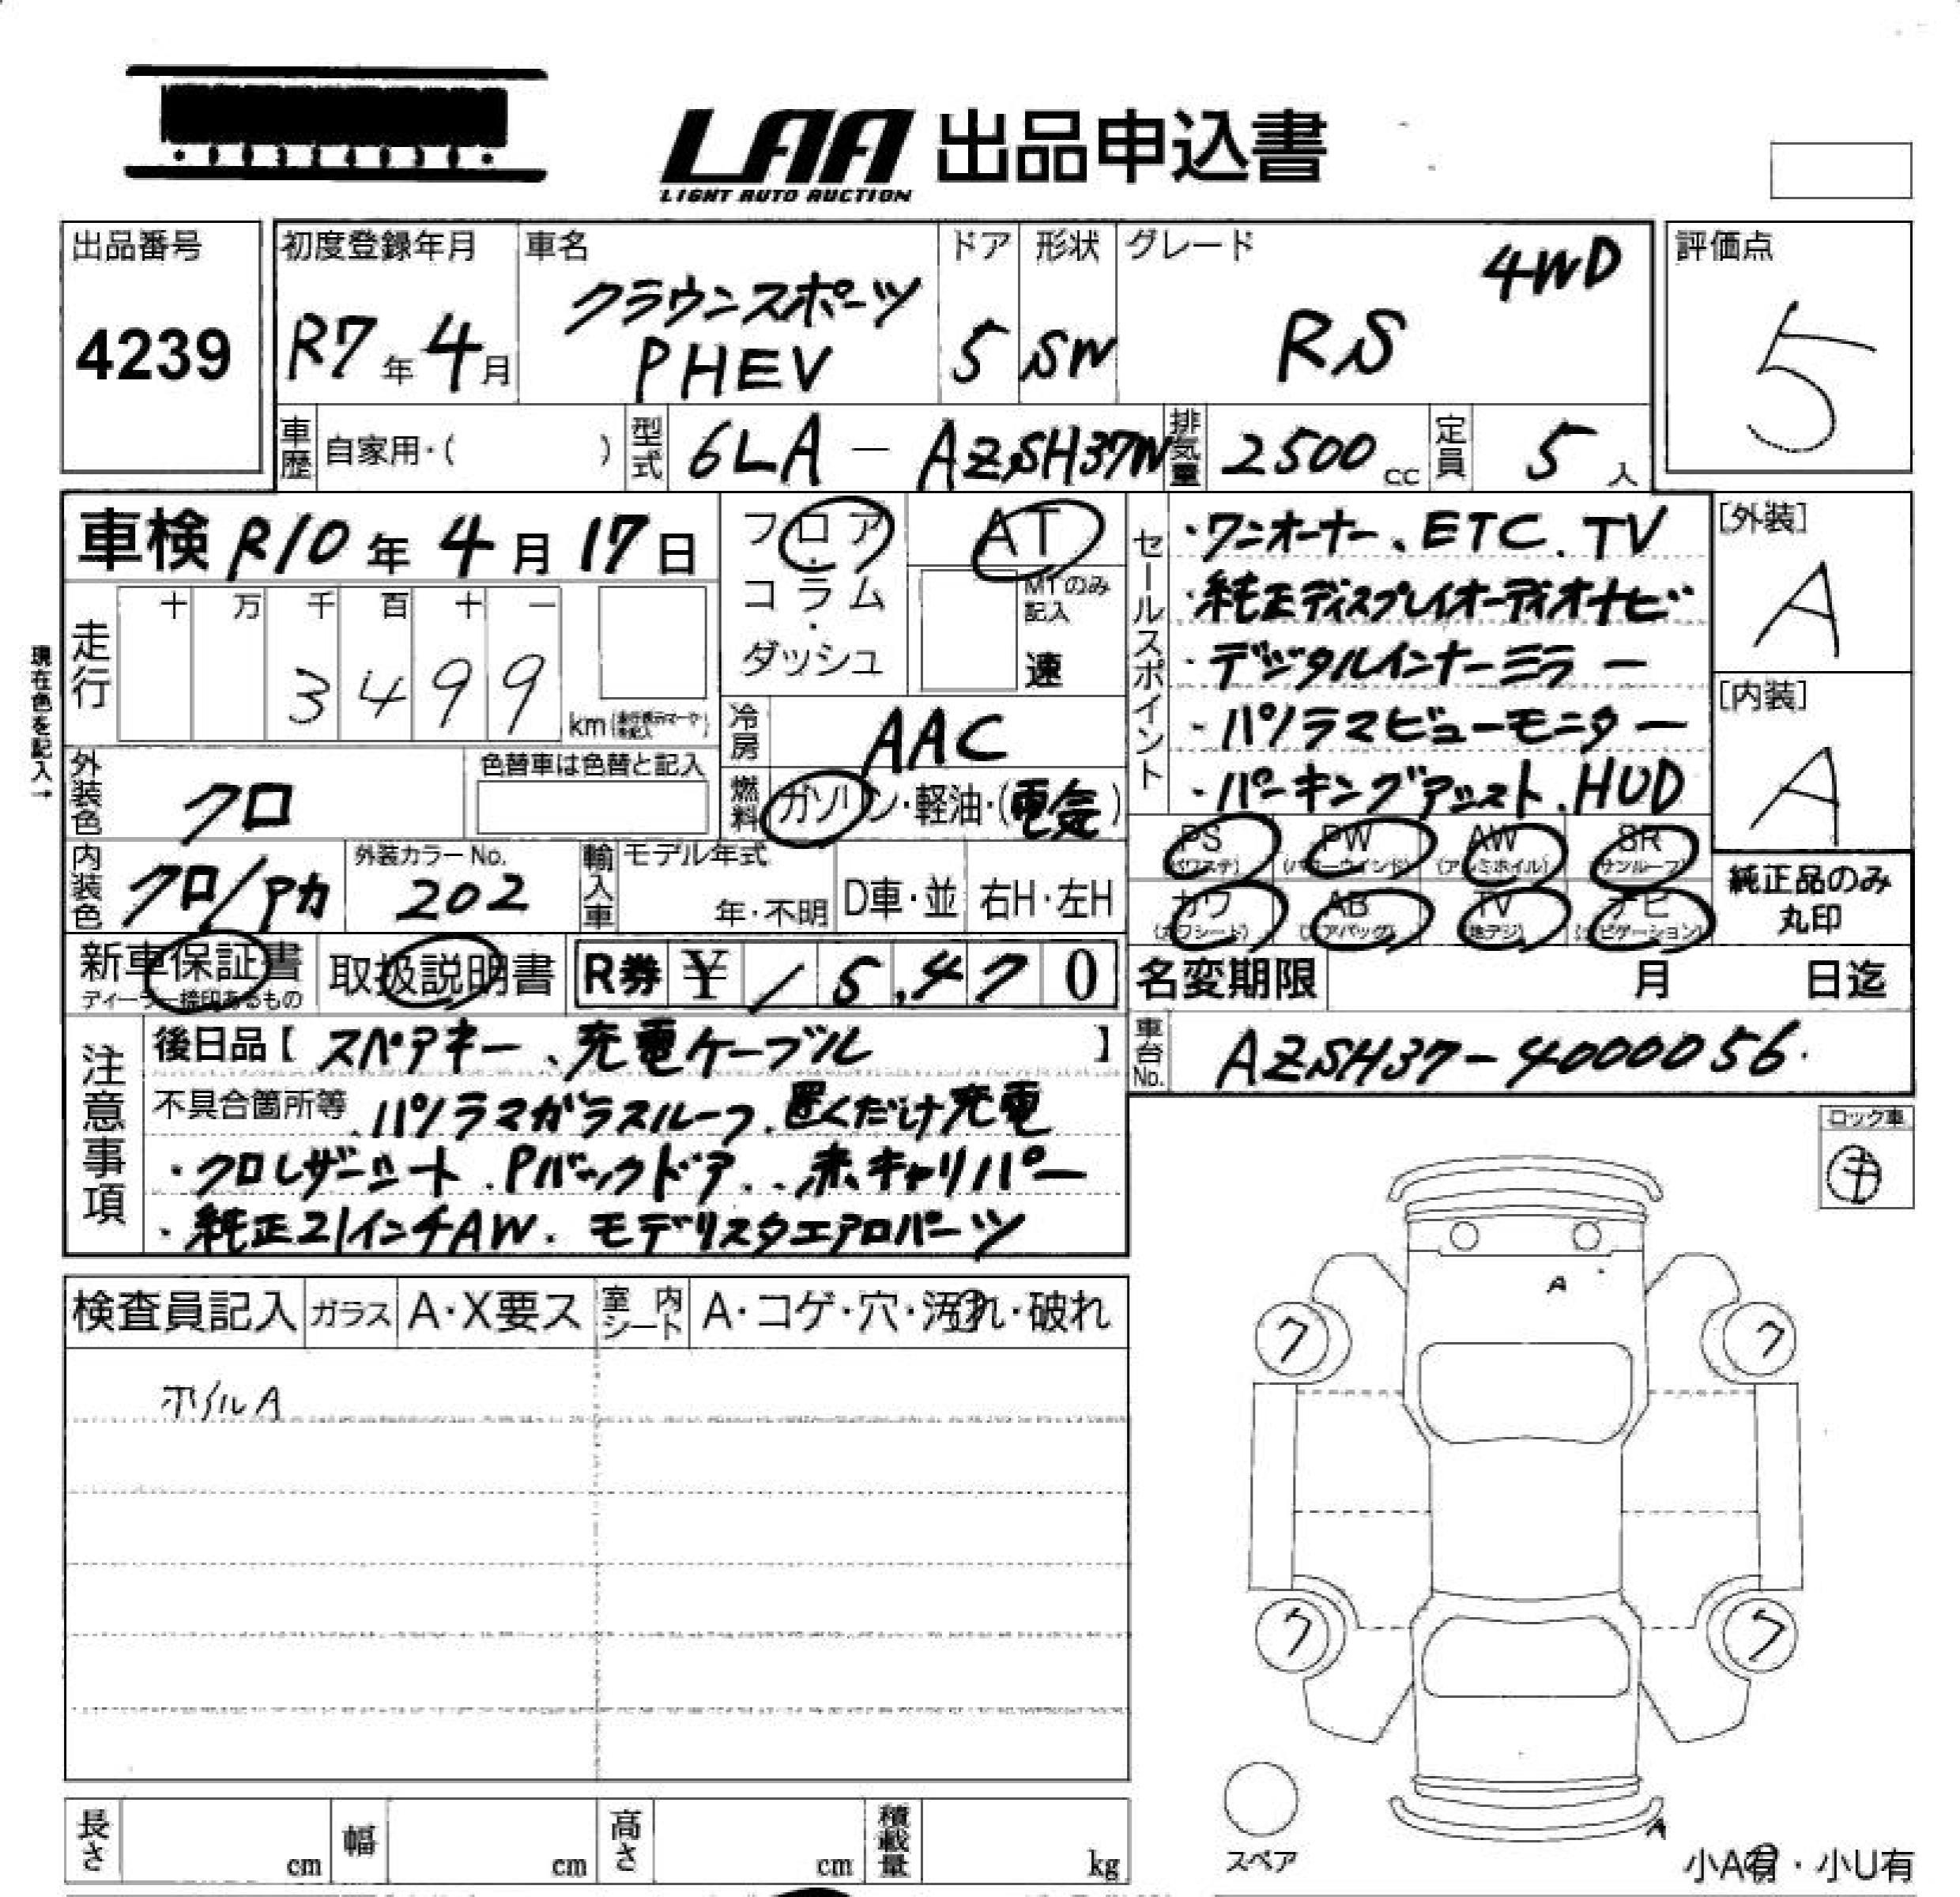 LAA 出品申込書
LIGHT AUTO AUCTION
出品番号
4239
初度登録年月
R7年4月
車名
クラウンスポーツ
PHEV
ドア
5
形状
SW
グレード
4WD
RS
評価点
5
車歴 自家用・( )
型式 6LA - AZSH37W
排気量 2500 cc
定員 5 人
車検 R10年4月17日
フロア・コラム・ダッシュ
AT
MTのみ記入
速
セールスポイント
・ワンオーナー、ETC、TV
・純正ディスプレイオーディオナビ
・デジタルインナーミラー
・パノラマビューモニター
・パーキングアシスト、HUD
[外装]
A
[内装]
A
現在色を記入→
走行
十 万 千 百 十 一
3 4 9 9
km
冷房 AAC
外装色 クロ
色替車は色替と記入
燃料 ガソリン・軽油・(電気)
内装色 クロ/アカ
外装カラーNo.
202
輸入車 モデル年式
年・不明
D車・並
右H・左H
PS (パワステ)
PW (パワーウインド)
AW (アルミホイル)
SR (サンルーフ)
カワ (カワシート)
AB (エアバッグ)
TV (地デジ)
ナビ (ナビゲーション)
純正品のみ
丸印
新車保証書
ディーラー捺印あるもの
取扱説明書
R券 ¥ 15,470
名変期限 月 日迄
注意事項
後日品【スペアキー、充電ケーブル】
不具合箇所等 パノラマガラスルーフ、置くだけ充電
・クロレザーシート、Pバックドア、赤キャリパー
・純正21インチAW、モデリスタエアロパーツ
車台No. AZSH37-4000056
ロック車
キ
検査員記入
ガラス A・X要ス
室内シート A・コゲ・穴・汚れ・破れ
ホイルA
A
ク ク
ク ク
A
スペア
小A有・小U有
長さ cm
幅 cm
高さ cm
積載量 kg